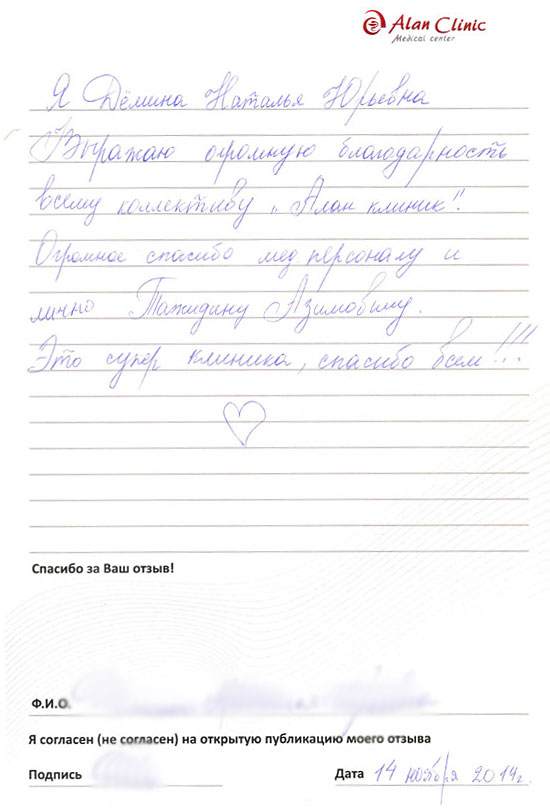 Alan Clinic
Medical center
Я Дёмина Наталья Юрьевна
Выражаю огромную благодарность
всему коллективу „Алан клиник".
Огромное спасибо мед. персоналу и
лично Тажидину Азимовичу.
Это супер клиника, спасибо всем!!!
Спасибо за Ваш отзыв!
Ф.И.О.
Я согласен (не согласен) на открытую публикацию моего отзыва
Подпись Дата 14 ноября 2014г.